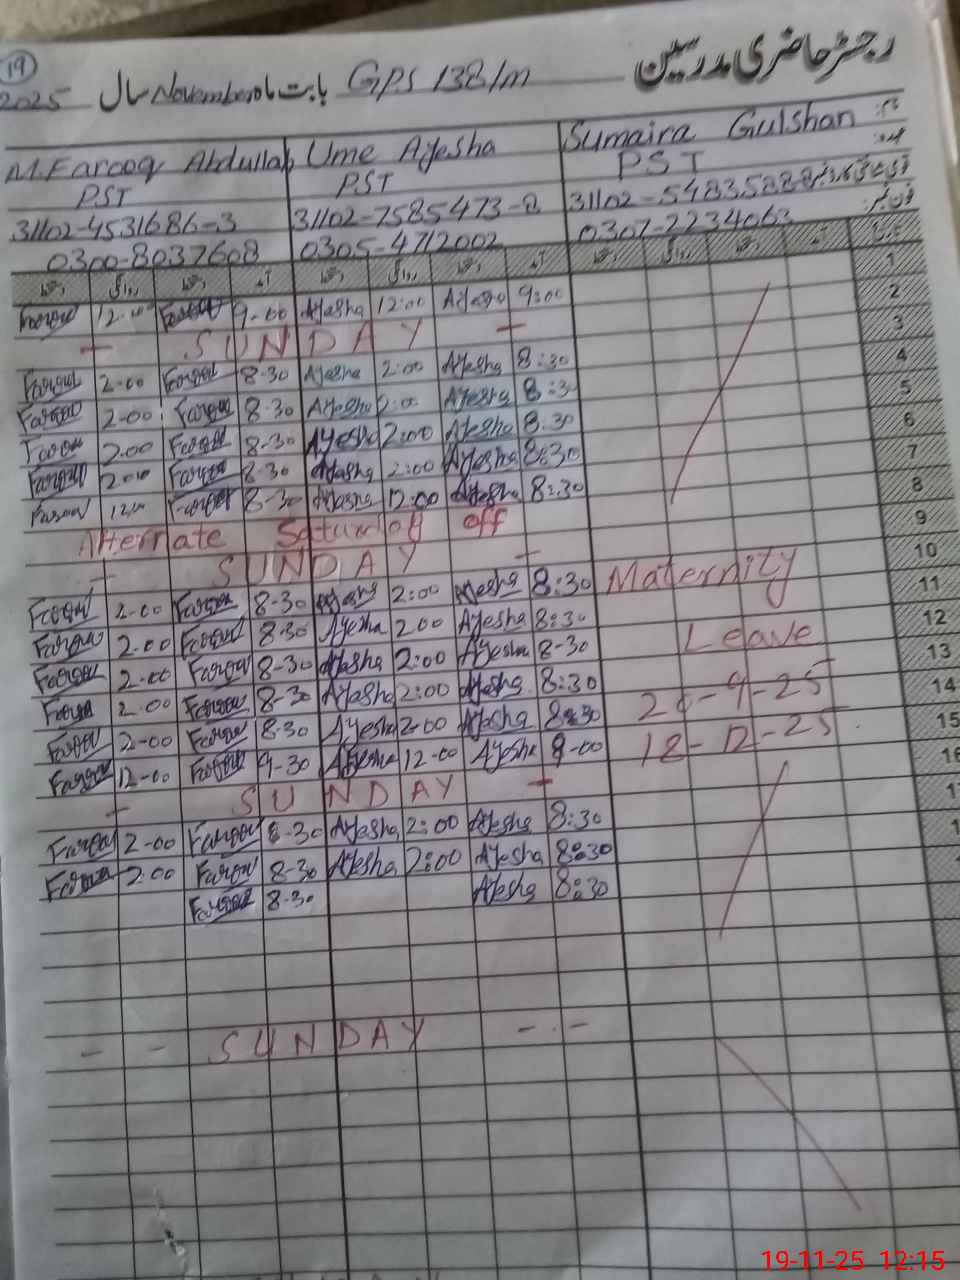 رجسٹر حاضری مدرسین
19
GPS 138/m بابت ماہ November سال 2025
M. Farooq Abdullah Ume Ayesha Sumaira Gulshan نام
PST PST PST عہدہ
31102-4531686-3 31102-7585473-8 31102-5483588-8
0300-8037608 0305-4712002 0307-2234063 فون نمبر
دستخط روانگی دستخط آمد دستخط روانگی دستخط آمد دستخط روانگی دستخط آمد تاریخ
Farooq 12-00 Farooq 9-00 Ayesha 12:00 Ayesha 9:00 1
- SUNDAY - 2
Farooq 2-00 Farooq 8-30 Ayesha 2:00 Ayesha 8:30 3
Farooq 2-00 Farooq 8-30 Ayesha 2:00 Ayesha 8:30 4
Farooq 2.00 Farooq 8-30 Ayesha 2:00 Ayesha 8.30 5
Farooq 2.00 Farooq 8-30 Ayesha 2:00 Ayesha 8:30 6
Farooq 12.00 Farooq 8-30 Ayesha 12:00 Ayesha 8:30 7
Alternate Saturday off 8
- SUNDAY - 9
Farooq 2-00 Farooq 8-30 Ayesha 2:00 Ayesha 8:30 Maternity 10
Farooq 2.00 Farooq 8-30 Ayesha 200 Ayesha 8:30 11
Farooq 2-00 Farooq 8-30 Ayesha 2:00 Ayesha 8-30 Leave 12
Farooq 2.00 Farooq 8-30 Ayesha 2:00 Ayesha 8:30 13
Farooq 2-00 Farooq 8-30 Ayesha 2:00 Ayesha 8:30 26-9-25 14
Farooq 12-00 Farooq 9-30 Ayesha 12-00 Ayesha 9-00 18-12-25 15
- SUNDAY - 16
Farooq 2-00 Farooq 8-30 Ayesha 2:00 Ayesha 8:30
Farooq 2.00 Farooq 8-30 Ayesha 2:00 Ayesha 8:30
Farooq 8-30 Ayesha 8:30
- - SUNDAY - . -
19-11-25 12:15